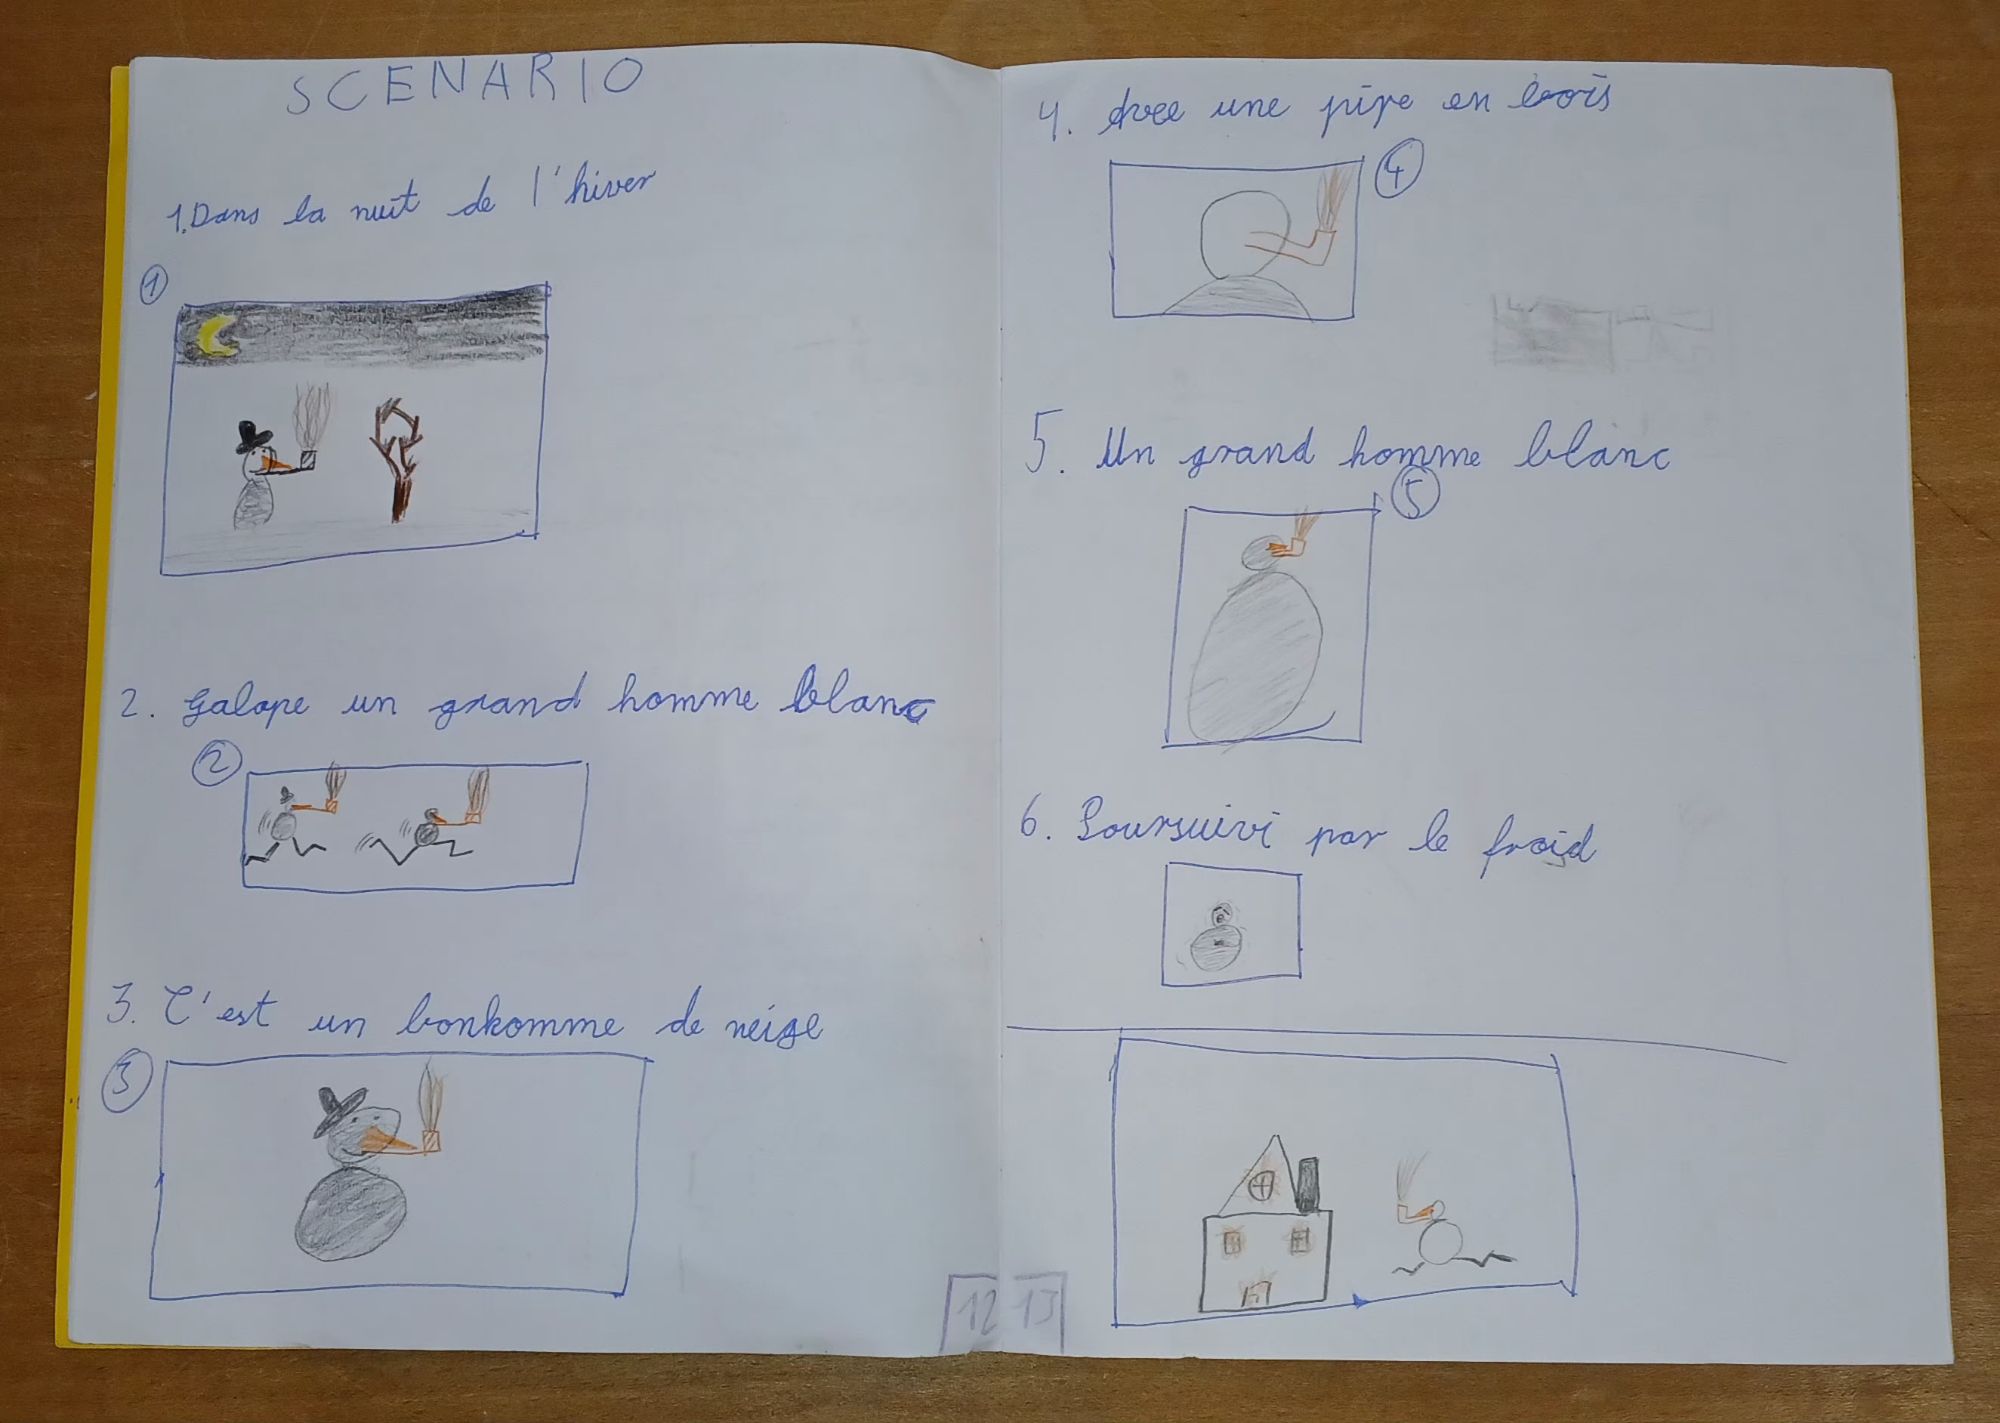 SCENARIO
1. Dans la nuit de l'hiver
1
2. Galope un grand homme blanc
2
3. C'est un bonhomme de neige
3
4. Avec une pipe en bois
4
5. Un grand homme blanc
5
6. Poursuivi par le froid
12 13